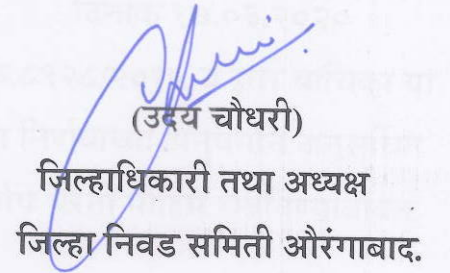 (उदय चौधरी)
जिल्हाधिकारी तथा अध्यक्ष
जिल्हा निवड समिती औरंगाबाद.